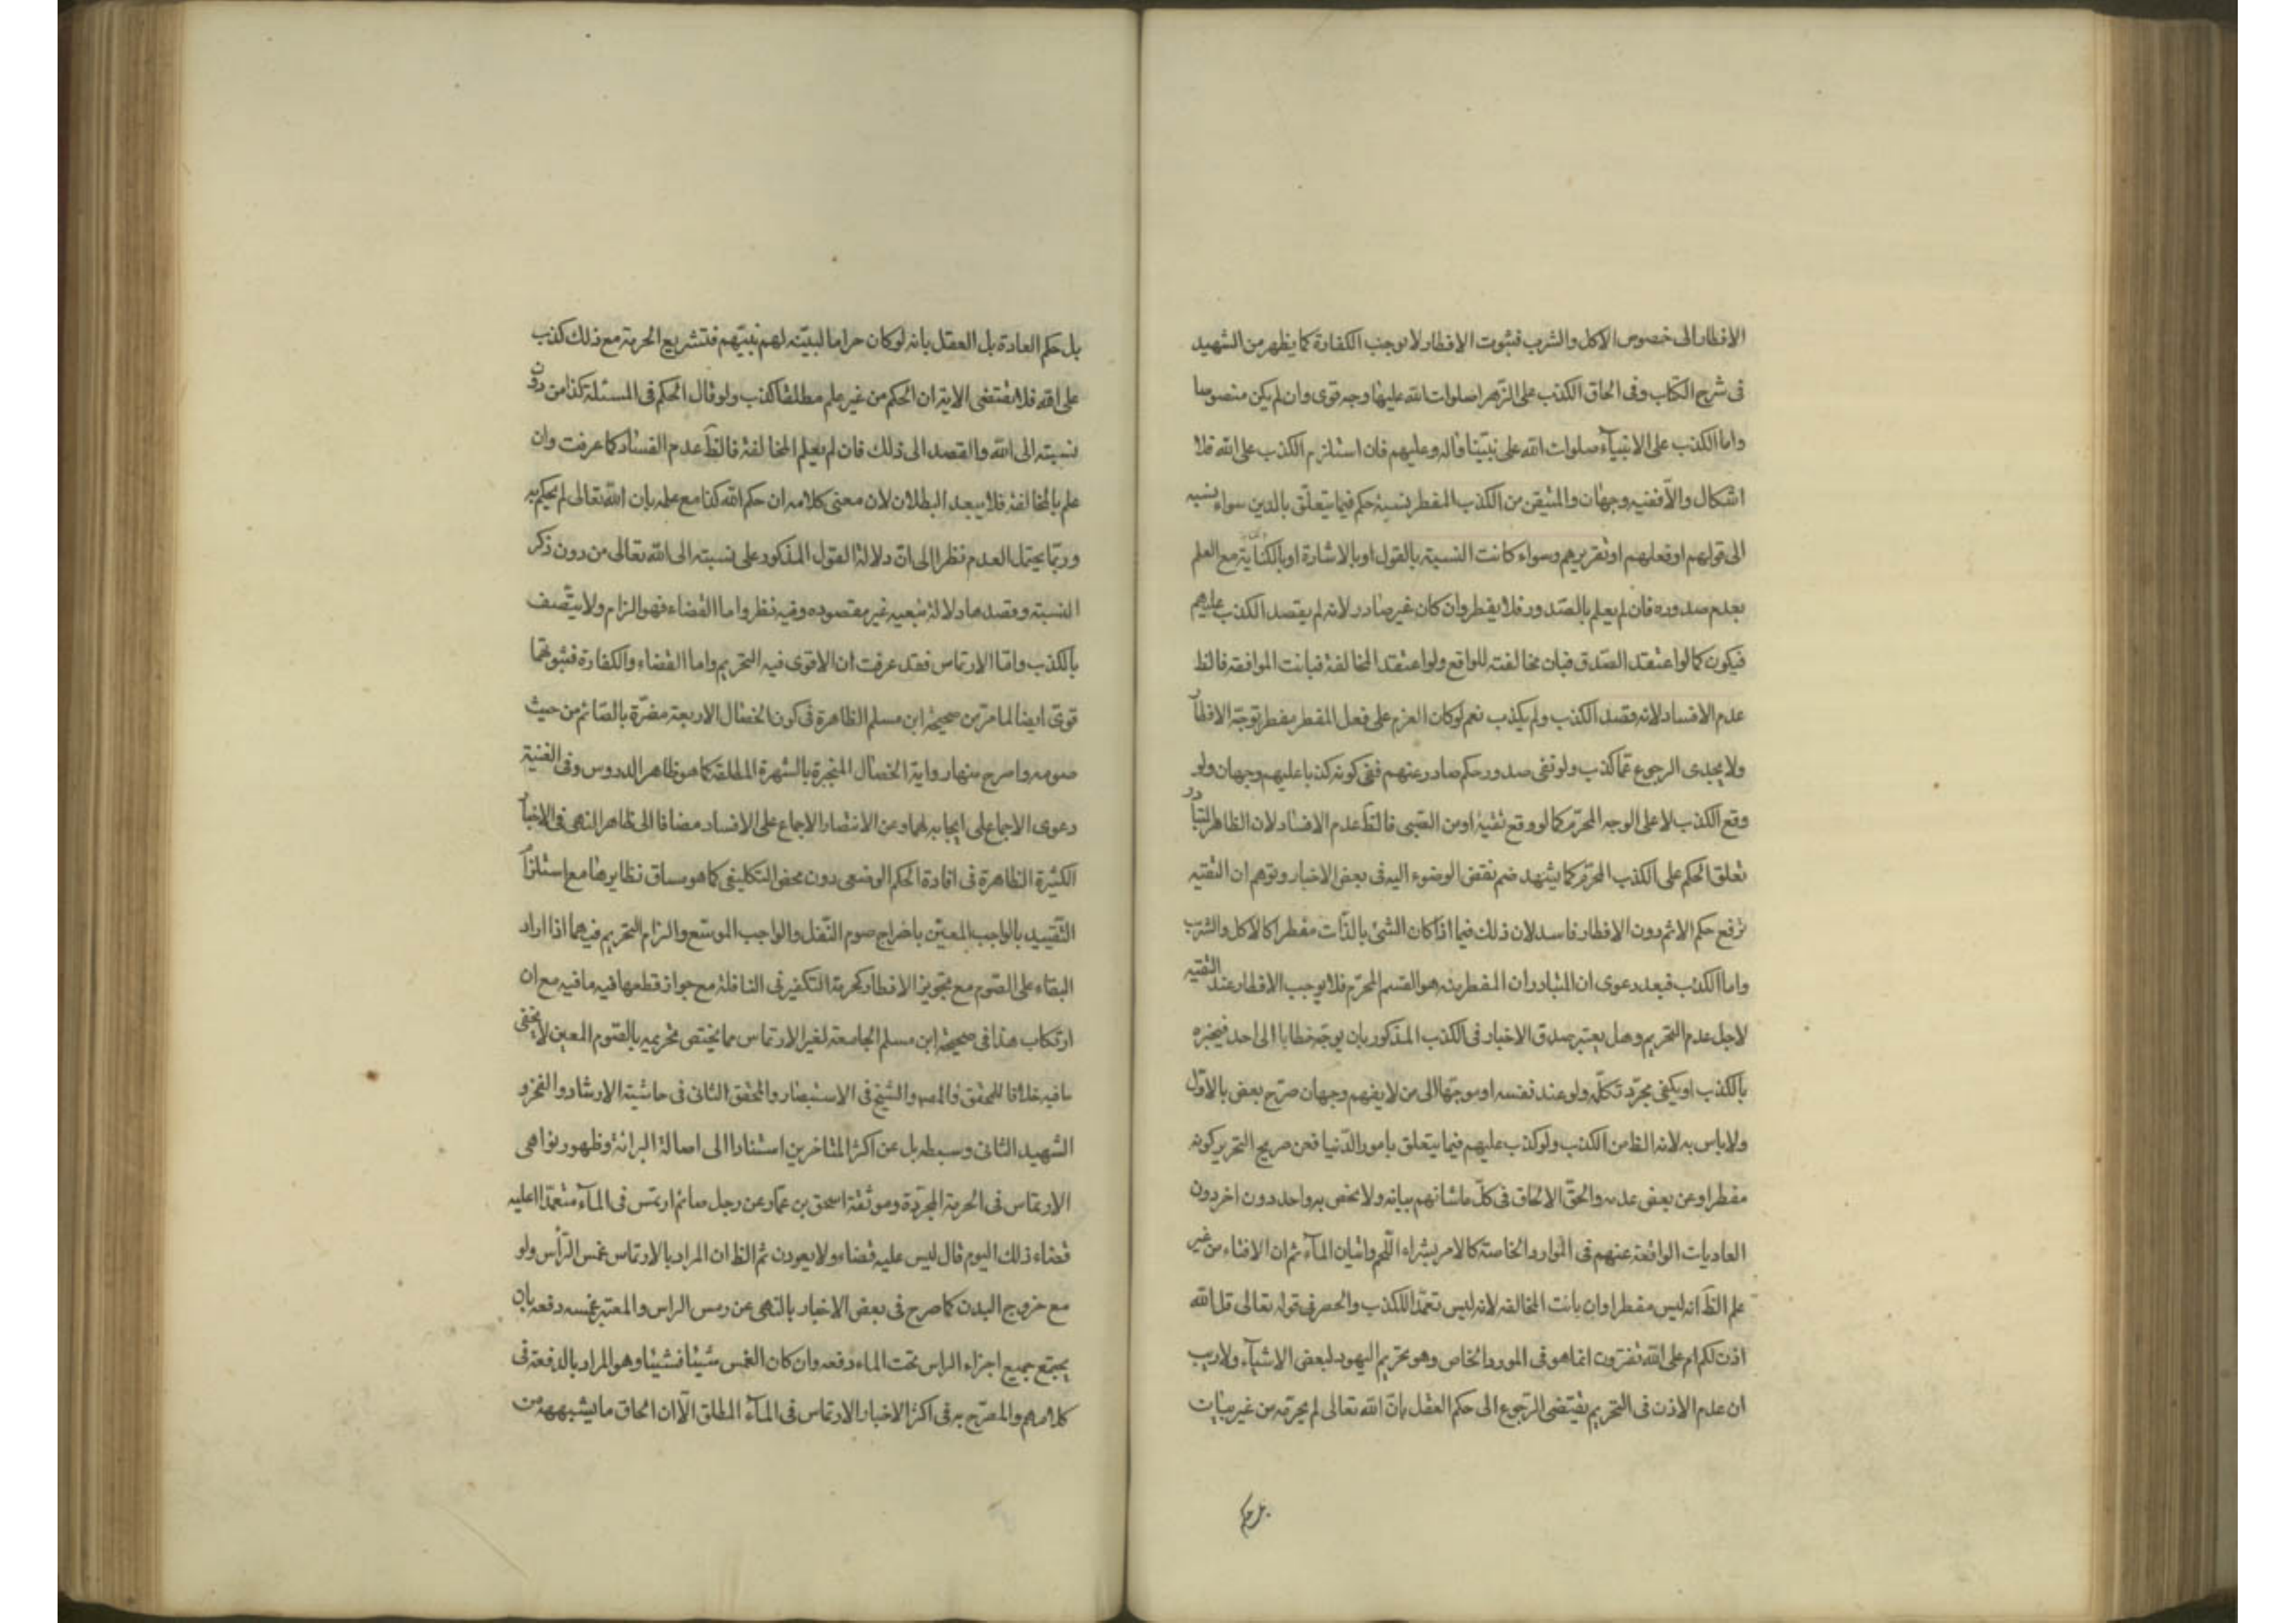 الافطار الى خصوص الاكل والشرب فثبوت الافطار لا يوجب الكفارة كما يظهر من الشهيد
فى شرح الكتاب وفى الحاق الكذب على الزهرا صلوات الله عليها وجه قوى وان لم يكن منصوصا
واما الكذب على الانبيآء صلوات الله على نبيّنا وآله وعليهم فان استلزم الكذب على الله فلا
اشكال والّا ففيه وجهان والمتيقن من الكذب المفطر نسبة حكم فيما يتعلّق بالدين سواء نسبه
الى قولهم او فعلهم او تقريرهم وسواء كانت النسبة بالقول او بالاشارة او بالكناية مع العلم
بعدم صدوره فان لم يعلم بالصّدور فلا يفطر وان كان غير صادر لانه لم يقصد الكذب عليهم
فيكون كما لو اعتقد الصّدق فبان مخالفته للواقع ولو اعتقد المخالفة فبانت الموافقة فالظ
عدم الافساد لانه قصد الكذب ولم يكذب نعم لو كان العزم على فعل المفطر مفطر توجّه الافطا
ولا يجدى الرجوع عمّا كذب ولو نفى صدور حكم صادر عنهم ففى كونه كذبا عليهم وجهان ولو
وقع الكذب لا على الوجه المحرّم كما لو وقع تقيّة او من الصّبى فالظّ عدم الافساد لان الظاهر المتبادر
تعلق الحكم على الكذب المحرّم كما يشهد ضم نقض الوضوء اليه فى بعض الاخبار وتوهم ان التقيه
ترفع حكم الاثم دون الافطار فاسد لان ذلك فيما اذا كان الشئ بالذّات مفطرا كالاكل والشرب
واما الكذب فبعد دعوى ان المتبادر ان المفطر منه هو القسم المحرّم فلا يوجب الافطار عند التقيه
لاجل عدم التحريم وهل يعتبر صدق الاخبار فى الكذب المذكور بان يوجّه خطابا الى احد فيخبره
بالكذب او يكفى مجرّد تكلّمه ولو عند نفسه او موجّها الى من لا يفهم وجهان صرّح بعض بالاوّل
ولا باس به لانه الظ من الكذب ولو كذب عليهم فيما يتعلق بامور الدّنيا فعن صريح التحرير كونه
مفطرا وعن بعض عدمه والحقّ الالحاق فى كلّ ما شانهم بيانه ولا يختص به واحد دون اخر دون
العاديات الواقعة عنهم فى الموارد الخاصة كالامر بشراء اللّحم واتيان المآء ثم ان الافتاء من غير
علم الظّ انه ليس مفطرا وان بانت المخالفه لانه ليس تعمّدا للكذب والحصر فى قوله تعالى قل الله
اذن لكم ام على الله تفترون انما هو فى المورد الخاص وهو تحريم اليهود لبعض الاشيآء ولا ريب
ان عدم الاذن فى التحريم يقتضى الرّجوع الى حكم العقل بانّ الله تعالى لم يحرّمه من غير بيان
بل حكم
بل حكم العادة بل العقل بانه لو كان حراما لبيّنه لهم نبيّهم فتشريع الحرمة مع ذلك كذب
على الله فلا يقتضى الاية ان الحكم من غير علم مطلقا كذب ولو قال الحكم فى المسئلة كذا من دون
نسبته الى الله والقصد الى ذلك فان لم يعلم المخالفة فالظّ عدم الفساد كما عرفت وان
علم بالمخالفة فلا يبعد البطلان لان معنى كلامه ان حكم الله كذا مع علمه بان الله تعالى لم يحكم به
وربّما يحتمل العدم نظرا الى انّ دلالة القول المذكور على نسبته الى الله تعالى من دون ذكر
النسبة وقصدها دلالة تبعيه غير مقصوده وفيه نظر واما القضاء فهو الزام ولا يتّصف
بالكذب وامّا الارتماس فقد عرفت ان الاقوى فيه التحريم واما القضاء والكفارة فثبوتهما
قوىّ ايضا لما مرّ من صحيحة ابن مسلم الظاهرة فى كون الخصال الاربعة مضرّة بالصّائم من حيث
صومه واصرح منها رواية الخصال المنجبرة بالشهرة المطلقة كما هو ظاهر الدروس وفى الغنية
دعوى الاجماع على ايجابه لهما وعن الانتصار الاجماع على الافساد مضافا الى ظاهر النهى فى الاخبا
الكثيرة الظاهرة فى افادة الحكم الوضعى دون محض التكليفى كما هو مساق نظايرها مع استلزا
التقييد بالواجب المعيّن باخراج صوم النّفل والواجب الموسّع والزام التحريم فيهما اذا اراد
البقاء على الصّوم مع تجويز الافطار كحرمة التكفير فى النافلة مع جواز قطعها فيه ما فيه مع ان
ارتكاب هذا فى صحيحة ابن مسلم الجامعة لغير الارتماس مما يختص تحريمه بالصّوم المعين لا يخفى
ما فيه خلافا للمحقق والمص والشيخ فى الاستبصار والمحقق الثانى فى حاشية الارشاد والفخر و
الشهيد الثانى وسبطه بل عن اكثر المتاخرين استنادا الى اصالة البرائة وظهور نواهى
الارتماس فى الحرمة المجرّدة وموثقة اسحق بن عمّار عن رجل صائم ارتمس فى المآء متعمّدا اعليه
قضاء ذلك اليوم قال ليس عليه قضاء ولا يعودن ثم الظ ان المراد بالارتماس غمس الرّأس ولو
مع خروج البدن كما صرح فى بعض الاخبار بالنّهى عن رمس الراس والمعتبر غمسه دفعه بان
يجتمع جميع اجزاء الراس تحت الماء دفعه وان كان الغمس شيئا فشيئا وهو المراد بالدفعة فى
كلامهم والمصرّح به فى اكثر الاخبار الارتماس فى المآء المطلق الّا ان الحاق ما يشبهه من